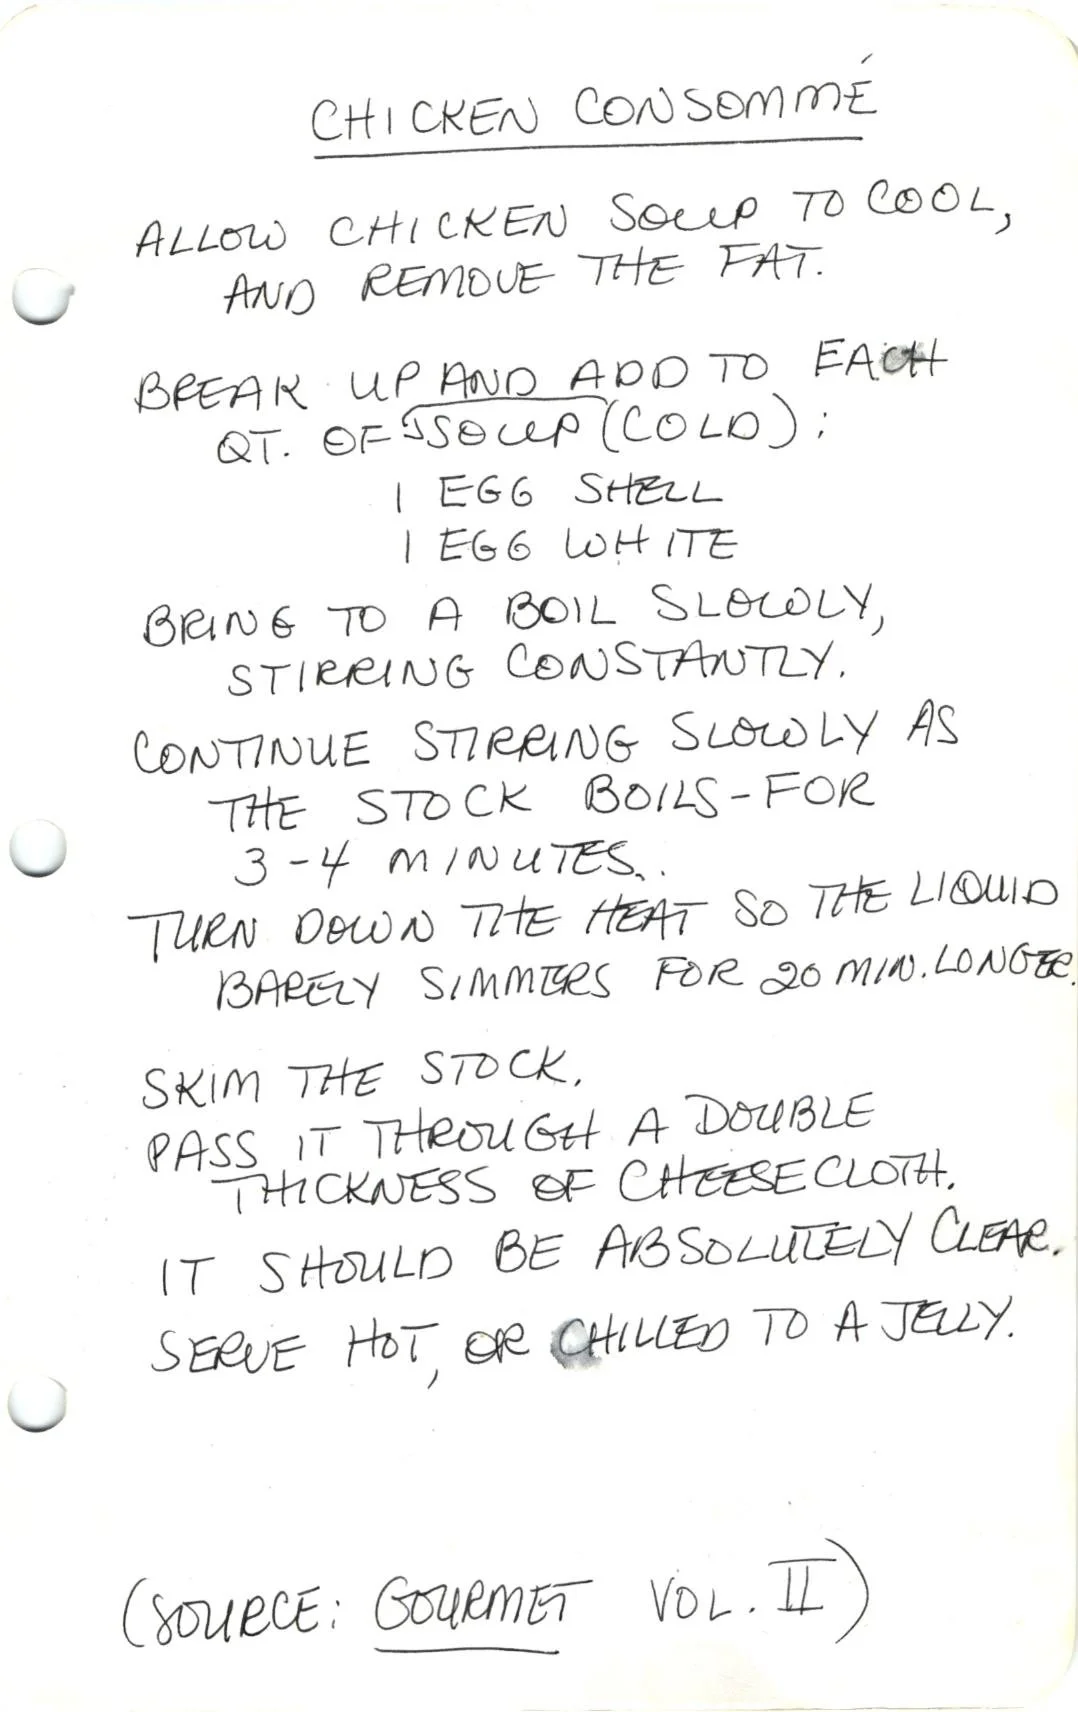 CHICKEN CONSOMMÉ
ALLOW CHICKEN SOUP TO COOL,
AND REMOVE THE FAT.
BREAK UP AND ADD TO EACH
QT. OF SOUP (COLD):
1 EGG SHELL
1 EGG WHITE
BRING TO A BOIL SLOWLY,
STIRRING CONSTANTLY.
CONTINUE STIRRING SLOWLY AS
THE STOCK BOILS - FOR
3-4 MINUTES.
TURN DOWN THE HEAT SO THE LIQUID
BARELY SIMMERS FOR 20 MIN. LONGER.
SKIM THE STOCK.
PASS IT THROUGH A DOUBLE
THICKNESS OF CHEESECLOTH.
IT SHOULD BE ABSOLUTELY CLEAR.
SERVE HOT, OR CHILLED TO A JELLY.
(SOURCE: GOURMET VOL. II)